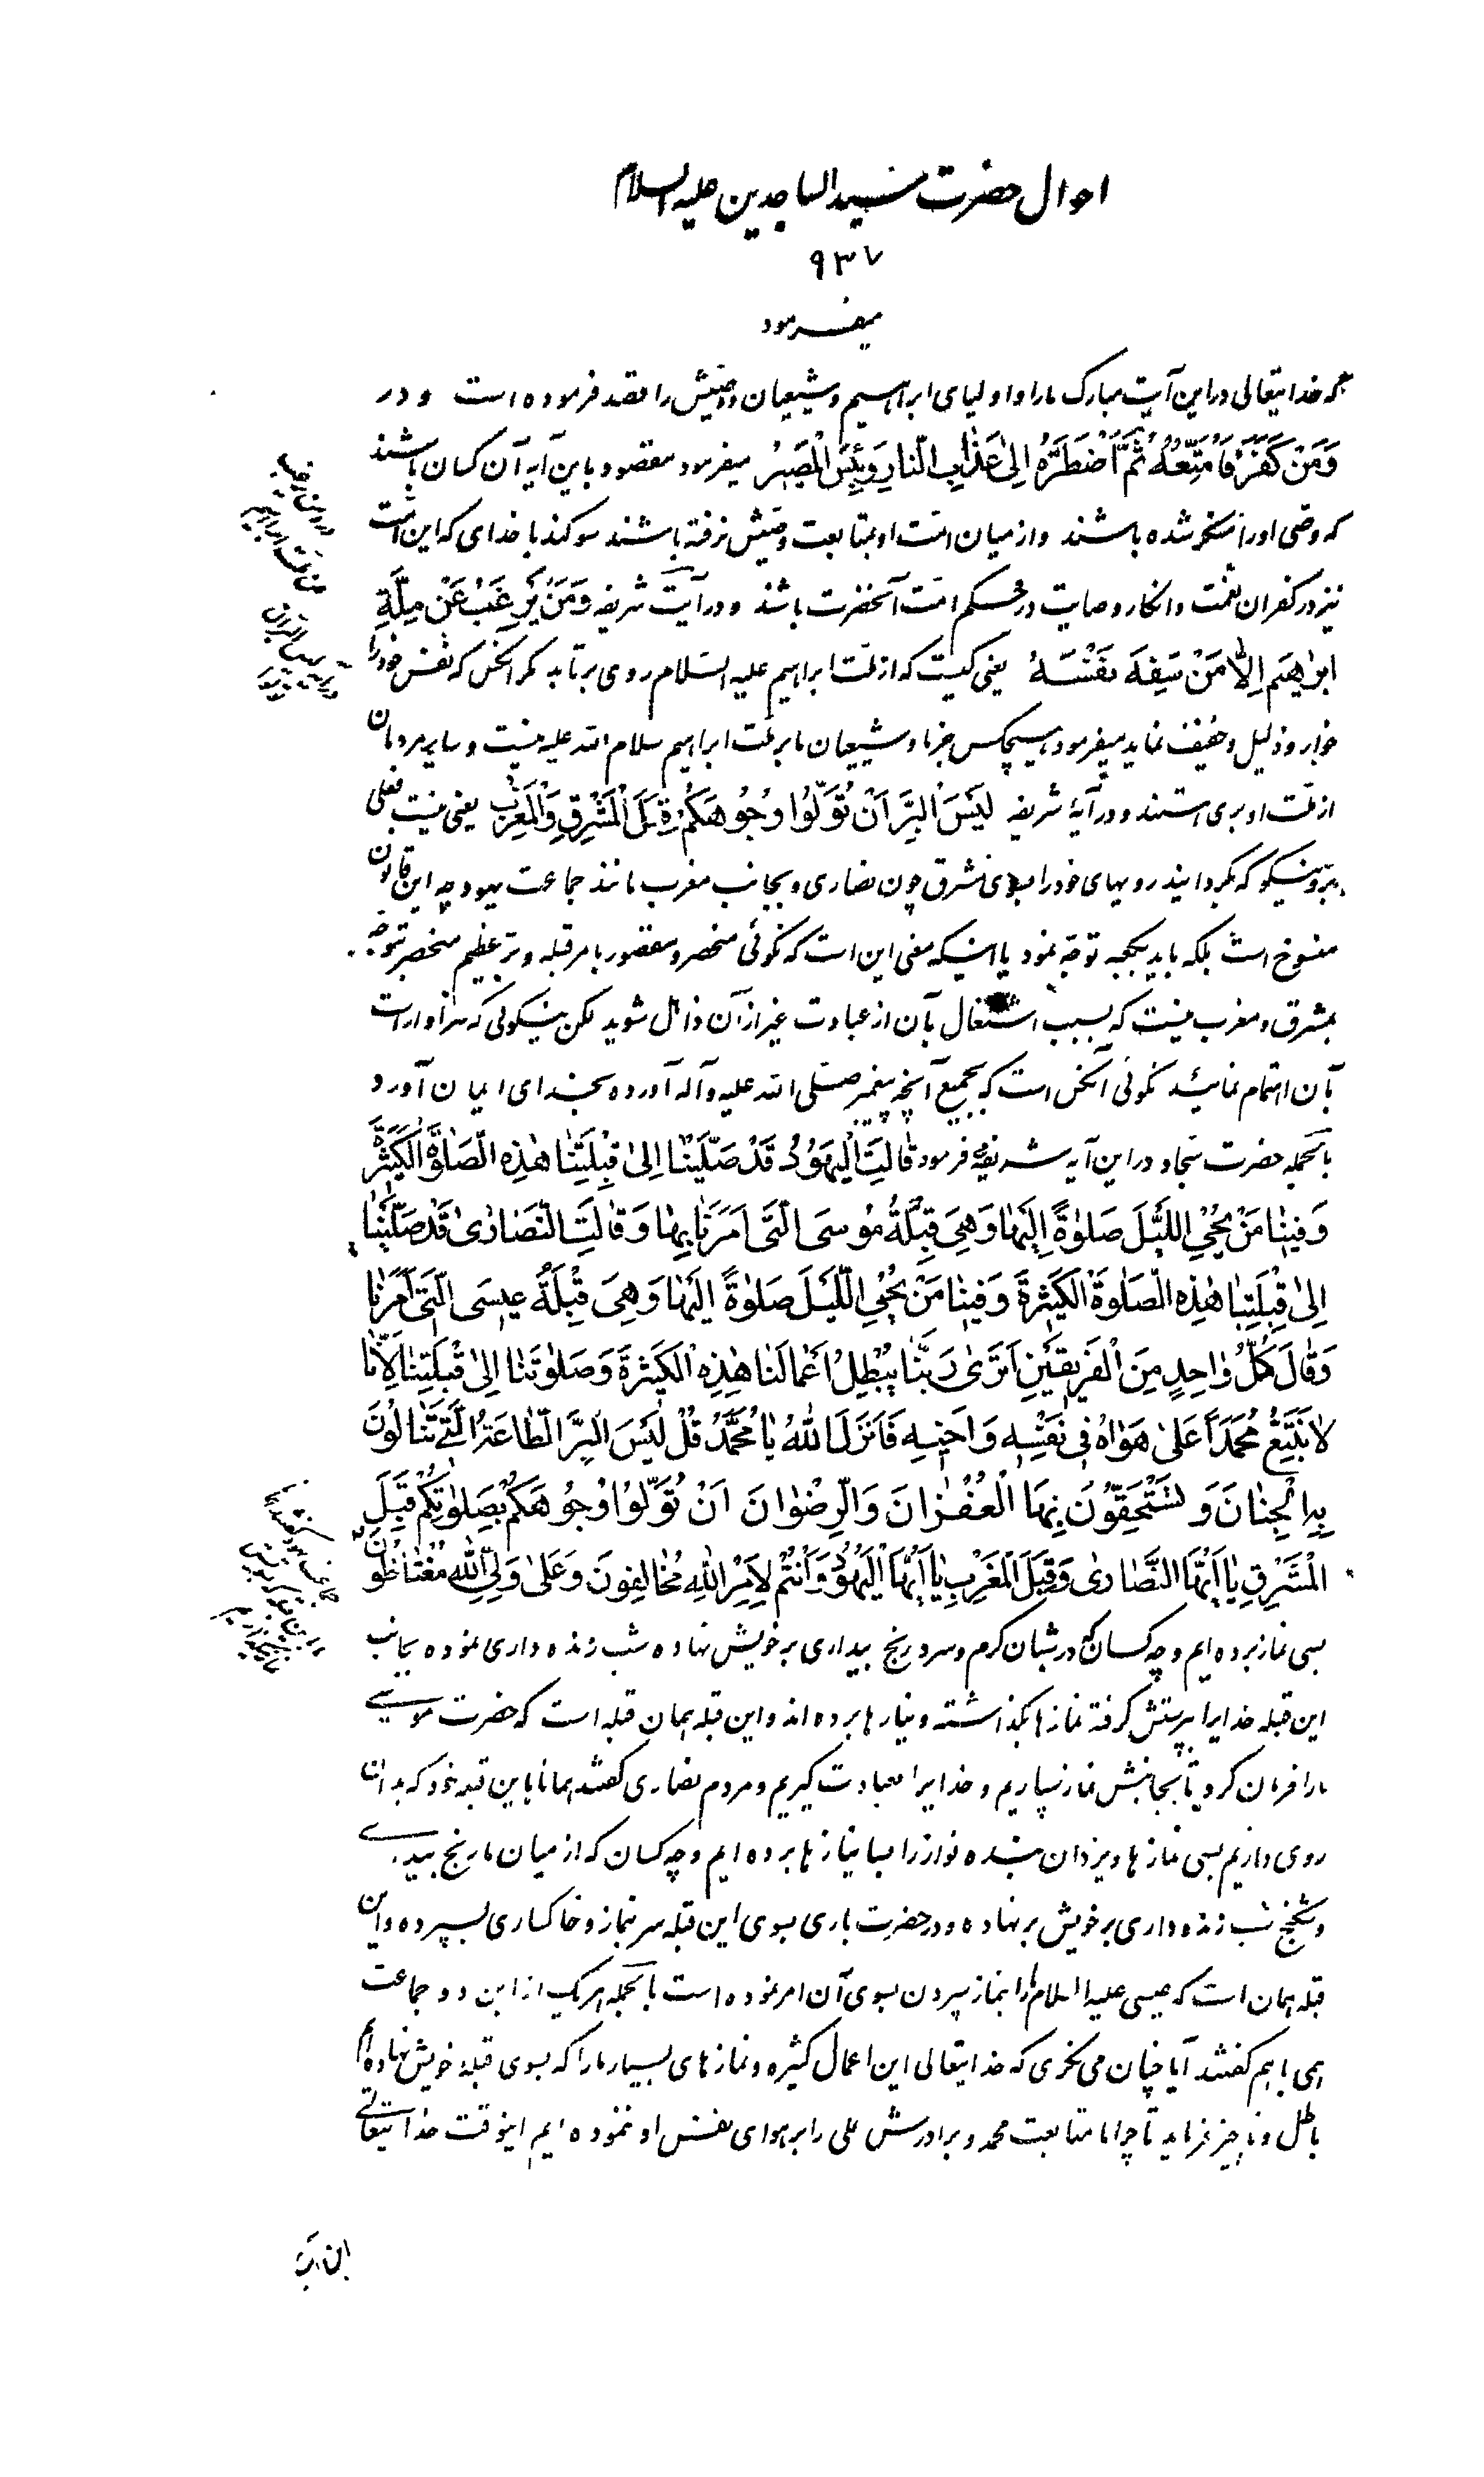 احوال حضرت سیدالساجدین علیه السلام
۹۳۷
میفرمود
که خدایتعالی در این آیت مبارک ما را و اولیای ابراهیم و شیعیان وصیش را قصد فرموده است و در
وَمَنْ كَفَرَ فَاُمَتِّعُهُ ثُمَّ اَضْطَرُّهُ اِلىٰ عَذٰابِ النّارِ وَبِئْسَ الْمَصيرُ میفرمود مقصود باین آیه آن کسان باشند
که وصی او را منکر شده باشند و از میان امت او بمتابعت وصیش نرفته باشند سوگند با خدای که این امت
نیز در کفران نعمت و انکار وصایت در حکم امت آنحضرت باشند و در آیت شریفه وَمَنْ يَرْغَبُ عَنْ مِلَّةِ
اِبْرٰاهيمَ اِلّٰا مَنْ سَفِهَ نَفْسَهُ یعنی کیست که از ملت ابراهیم علیه السلام روی برتابد مگر آنکس که نفس خود را
خوار و ذلیل و خفیف نماید میفرمود هیچکس جز ما و شیعیان ما بر ملت ابراهیم سلام الله علیه نیست و سایر مردمان
از ملت او بری هستند و در آیهٔ شریفه لَيْسَ الْبِرَّ اَنْ تُوَلّوُا وُجُوهَكُمْ قِبَلَ الْمَشْرِقِ وَالْمَغْرِبِ یعنی نیست فعلی
برّ و نیکو که بگردانید رویهای خود را بسوی مشرق چون نصاری و بجانب مغرب مانند جماعت یهود چه این قانون
منسوخ است بلکه باید بکعبه توجه نمود یا اینکه معنی این است که نکوئی منحصر و مقصور بامر قبله و برّ عظیم منحصر بتوجه
بمشرق و مغرب نیست که بسبب اشتغال بآن از عبادت غیر از آن ذاهل شوید لکن نیکوئی که سزاوار است
بآن اهتمام نمائید نکوئی آنکس است که بجمیع آنچه پیغمبر صلی الله علیه و آله آورده و بخدای ایمان آورد
بالجمله حضرت سجاد در این آیه شریفه میفرمود قٰالَتِ الْيَهوُدُ قَدْ صَلَّيْنٰا اِلىٰ قِبْلَتِنٰا هٰذِهِ الصَّلٰوةَ الْكَثيرَةَ
وَفينٰا مَنْ يُحْيِى اللَّيْلَ صَلٰوةً اِلَيْهٰا وَهِىَ قِبْلَةُ مُوسَى الَّتى اَمَرَنٰا بِهٰا وَقٰالَتِ النَّصٰارىٰ قَدْ صَلَّيْنٰا
اِلىٰ قِبْلَتِنٰا هٰذِهِ الصَّلٰوةَ الْكَثيرَةَ وَفينٰا مَنْ يُحْيِى اللَّيْلَ صَلٰوةً اِلَيْهٰا وَهِىَ قِبْلَةُ عيسَى الَّتى اَمَرَنٰا
وَقٰالَ كُلُّ وٰاحِدٍ مِنَ الْفَريقَيْنِ اَتَرىٰ رَبَّنٰا يُبْطِلُ اَعْمالَنٰا هٰذِهِ الْكَثيرَةَ وَصَلٰوتَنٰا اِلىٰ قِبْلَتِنٰا لِاَنّٰا
لاٰ نَتَّبِعُ مُحَمَّداً عَلىٰ هَوٰاهُ فى نَفْسِهِ وَاَخيهِ فَاَنْزَلَ اللهُ يٰا مُحَمَّدُ قُلْ لَيْسَ الْبِرَّ الطّٰاعَةَ الَّتى تَنٰالُونَ
بِهَا الْجِنٰانَ وَتَسْتَحِقّوُنَ بِهَا الْغُفْرٰانَ وَالرِّضْوٰانَ اَنْ تُوَلّوُا وُجُوهَكُمْ بِصَلٰوتِكُمْ قِبَلَ
الْمَشْرِقِ يٰا اَيُّهَا النَّصٰارىٰ وَقِبَلَ الْمَغْرِبِ يٰا اَيُّهَا الْيَهوُدُ وَاَنْتُمْ لِاَمْرِ اللهِ مُخٰالِفوُنَ وَعَلىٰ وَلِىِّ اللهِ مُغْتٰاظُونَ
بسی نماز برده ایم و چه کسان که در شبان گرم و سرد رنج بیداری بر خویش نهاده شب زنده داری نموده بجانب
این قبله خدایرا پرستش گرفته نمازها بگذاشته و نیازها برده اند و این قبله همان قبله است که حضرت موسی
ما را فرمان کرد تا بجانبش نماز سپاریم و خدایرا بعبادت گیریم و مردم نصاری گفتند همانا باین قبله خود که بدان
روی داریم بسی نمازها و یزدان بنده نواز را بسا نیازها برده ایم و چه کسان که از میان ما رنج بیداری
و شکنج شب زنده داری بر خویش بر نهاده و در حضرت باری بسوی این قبله سر بنماز و خاکساری بسپرده و این
قبله همان است که عیسی علیه السلام ما را بنماز سپردن بسوی آن امر نموده است بالجمله هر یک از این دو جماعت
همی با هم گفتند آیا چنان می نگری که خدایتعالی این اعمال کثیره و نمازهای بسیار ما را که بسوی قبلهٔ خویش نهاده ایم
باطل و ناچیز فرماید تا چرا ما متابعت محمد و برادرش علی را بر هوای نفس او ننموده ایم اینوقت خدایتعالی
این آیت